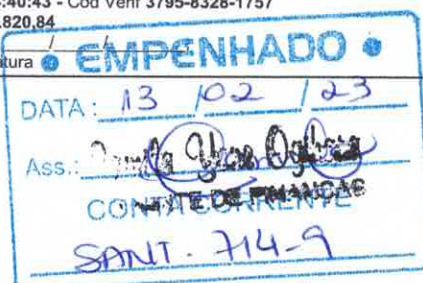 :40:43 - Cód Verif 3795-8328-1757
.820,84
atura
EMPENHADO
DATA: 13 / 02 / 23
Ass.:
DE FINANÇAS
CONTA CORRENTE
SANT. 714-9